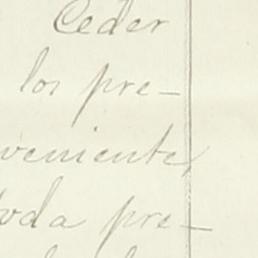 Ceder
los pre-
veniente,
toda pre-